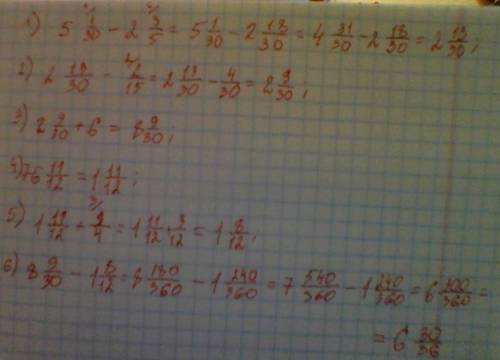 1) 5 1/30 - 2 3/5 = 5 1/30 - 2 18/30 = 4 31/30 - 2 18/30 = 2 13/30;
2) 2 13/30 - 2/15 = 2 13/30 - 4/30 = 2 9/30,
3) 2 9/30 + 6 = 8 9/30,
4) 76 11/12 = 1 11/12;
5) 1 11/12 + = 1 11/12 + 3/12 = 1 8/12,
6) 8 9/30 - 1 8/12 = 8 180/360 - 1 240/360 = 7 540/360 - 1 240/360 = 6 300/360 =
= 6 30/36